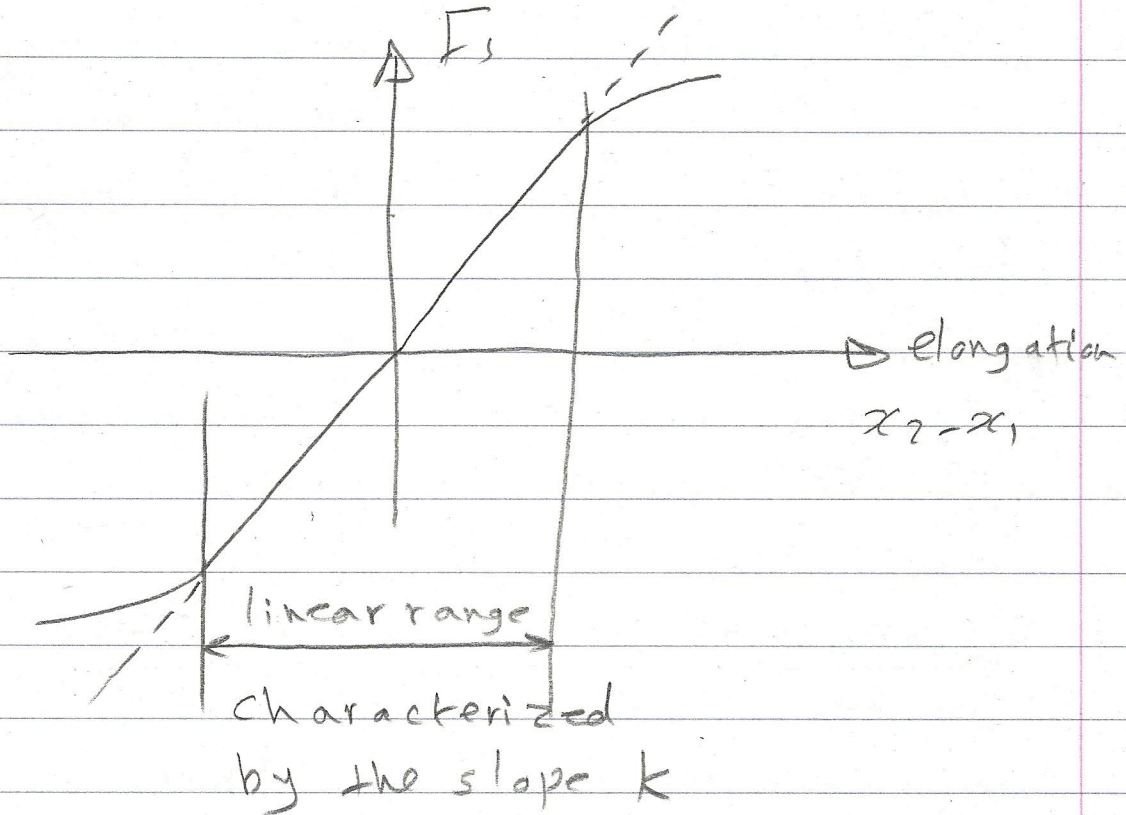 Fs
elongation
x₂-x₁
linear range
characterized
by the slope k